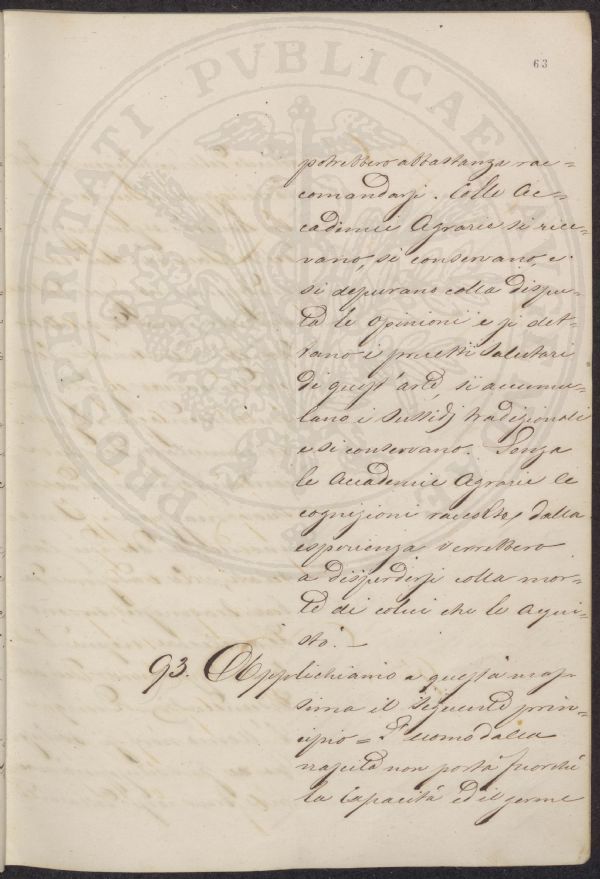 63
potrebbero abbastanza rac=
comandarsi. Colle Ac=
cademie Agrarie si rice=
vano, si conservano, e
si depurano colla dispu=
ta le opinioni e si det=
tano i precetti salutari
di quest'arte, si accumu=
lano i sussidj tradizionali
e si conservano. Senza
le Accademie Agrarie le
cognizioni raccolte dalla
esperienza verrebbero
a disperdersi colla mor=
te di colui che le acqui=
stò. —
93. Applichiamo a questa mas=
sima il seguente prin=
cipio = L'uomo dalla
nascita non porta fuorchè
la capacità ed il germe
PROSPERITATI PVBLICAE